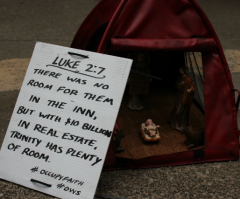 LUKE 2:7
THERE WAS NO
ROOM FOR THEM
IN THE INN,
BUT WITH $10 BILLION
IN REAL ESTATE,
TRINITY HAS PLENTY
OF ROOM.
#OCCUPYFAITH
#OWS